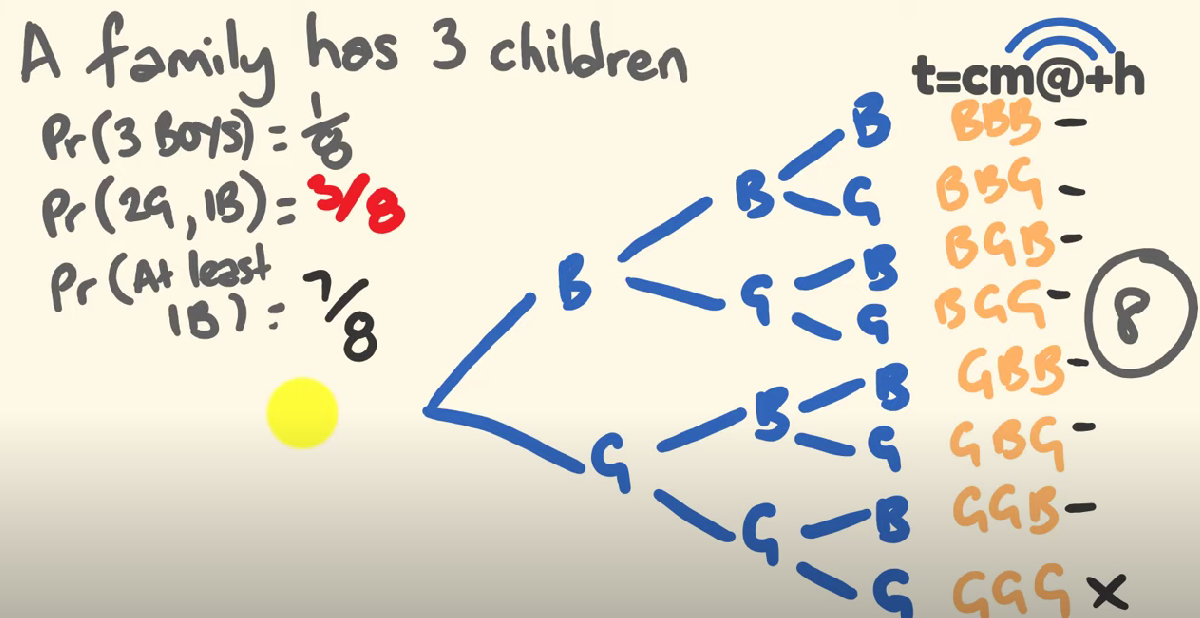 A family has 3 children
t=cm@+h
Pr(3 Boys) = 1/8
Pr(2G, 1B) = 3/8
Pr(At least
1B) = 7/8
B
G
B
G
B
G
B
G
B
G
B
G
B
G
BBB -
BBG -
BGB -
BGG -
GBB -
GBG -
GGB -
GGG x
8